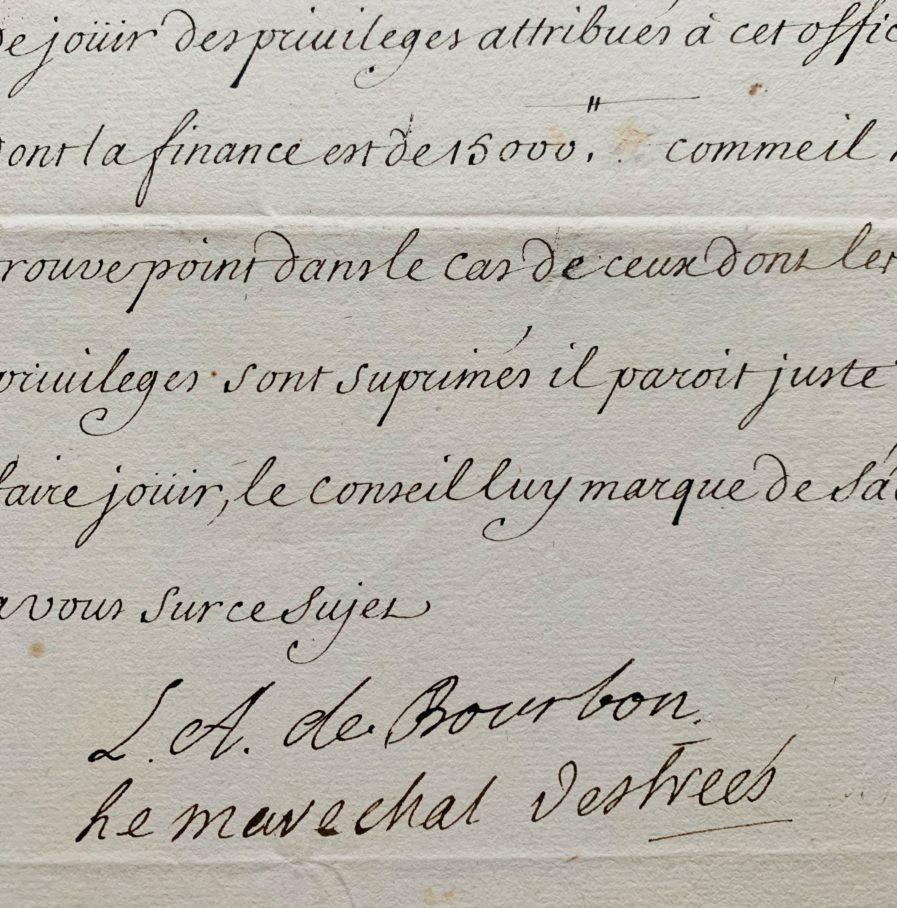 de joüir des priuileges attribués à cet offic
dont la finance est de 15000.ᴴ comme il
rouve point dans le cas de ceux dont les
priuileges sont suprimés il paroit juste
faire joüir, le conseil luy marque de s'a
a vous sur ce sujet
L. A. de Bourbon.
Le marechal Destreés